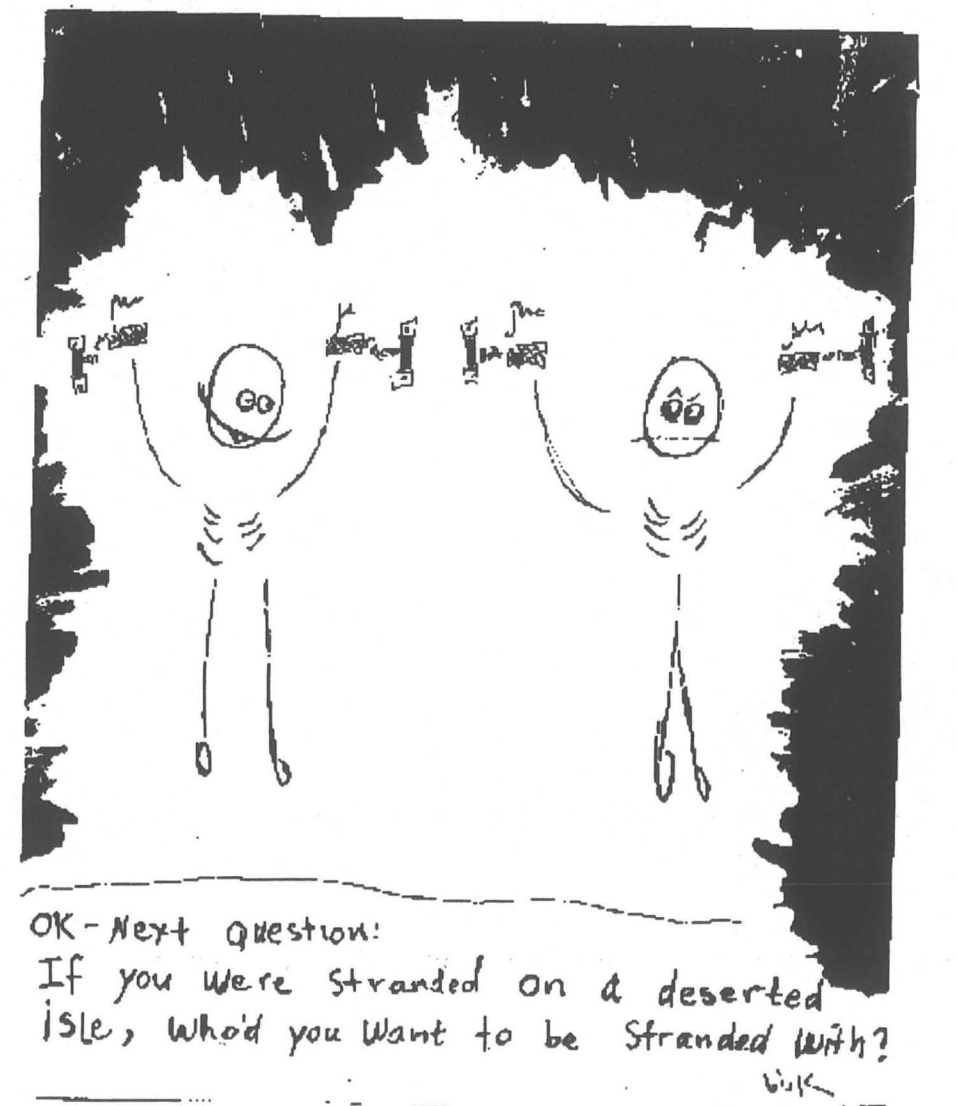 OK - Next question:
If you were stranded on a deserted
isle, who'd you want to be stranded with?